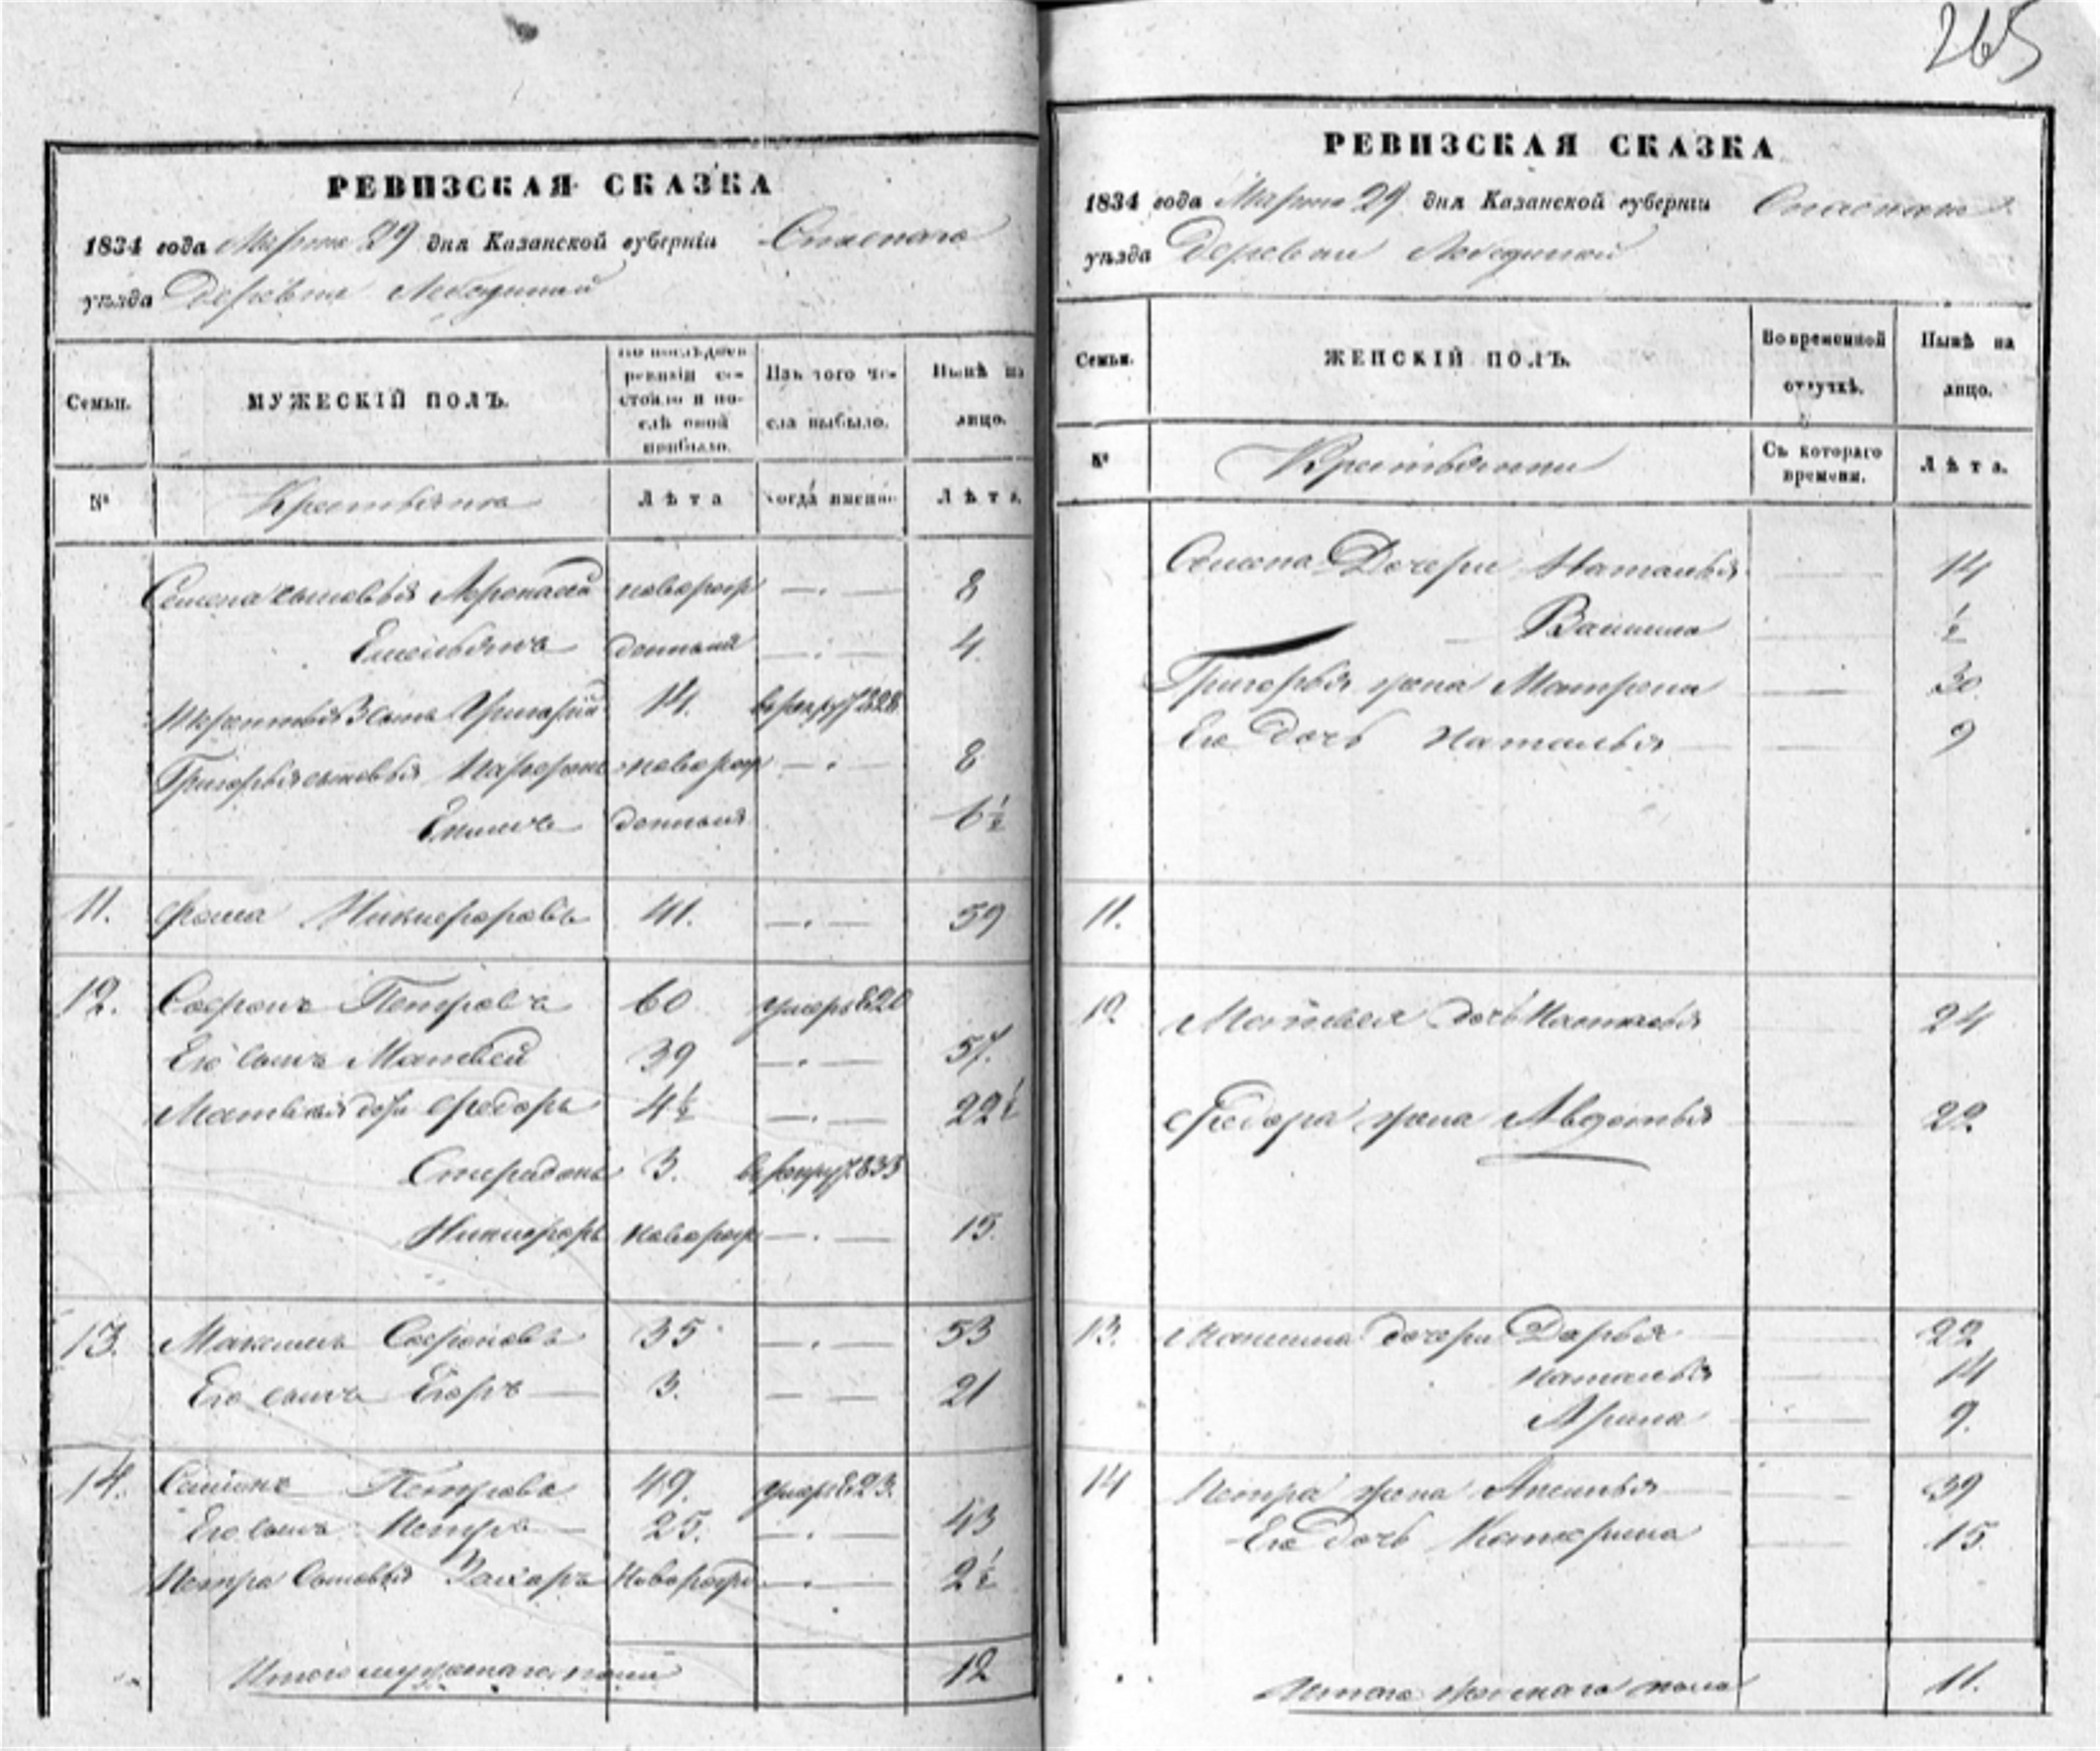 265
РЕВИЗСКАЯ СКАЗКА
1834 года Марта 29 дня Казанской губернiи Спаскаго
уѣзда Деревни Лебединой
Семьи.
МУЖЕСКІЙ ПОЛЪ.
По послѣдней ревизіи состояло и послѣ оной прибыло.
Изъ того числа выбыло.
Нынѣ на лицо.
№
Крестьяне
Лѣта
Когда именно
Лѣта.
Семена сыновья Афонасей новорож — 8
Емельянъ денныя — 4
3 сынъ Григорій 14. в рекру 1828
Григорья сыновья новорож — 8
денныя 6½
11. Фома Никифоровъ 41. — 59
12. Софронъ Петровъ 60 умеръ 820
Его сынъ Матвей 39 — 57.
Матвея дети Федоръ 4½ — 22½
Спиридонъ 3. в рекру 1833
Никифоръ новорож — 15.
13. Максимъ Софроновъ 35 — 53
Его сынъ Егоръ — 3. — 21
14. Семіонъ Петровъ 49. умеръ 823.
Его сынъ Петръ — 25. — 43
Петра Сыновья Захаръ новорож — 2½
Итого мужескаго пола 12
РЕВИЗСКАЯ СКАЗКА
1834 года Марта 29 дня Казанской губернiи Спаскаго
уѣзда Деревни Лебединой
Семьи.
ЖЕНСКІЙ ПОЛЪ.
Во временной отлучкѣ.
Нынѣ на лицо.
№
Крестьянки
Съ котораго времени.
Лѣта.
Семена Дочери Наталья — 14
½
Григорья жена Матрена — 30.
Его Дочь Наталья — 9
11.
12 Матвея дочь Наталья — 24
Федора жена Авдотья — 22.
13. Максима дочери Дарья — 22
Наталья — 14
Арина — 9.
14 Петра жена — 39
Его дочь Катерина — 15
Итого женскаго пола 11.